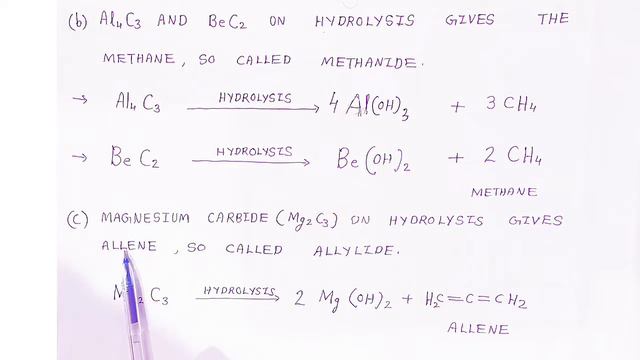 (b) Al4C3 AND BeC2 ON HYDROLYSIS GIVES THE
METHANE, SO CALLED METHANIDE.
→ Al4C3 HYDROLYSIS → 4 Al(OH)3 + 3 CH4
→ BeC2 HYDROLYSIS → Be(OH)2 + 2 CH4
METHANE
(C) MAGNESIUM CARBIDE (Mg2C3) ON HYDROLYSIS GIVES
ALLENE, SO CALLED ALLYLIDE.
M 2 C3 HYDROLYSIS → 2 Mg(OH)2 + H2C=C=CH2
ALLENE